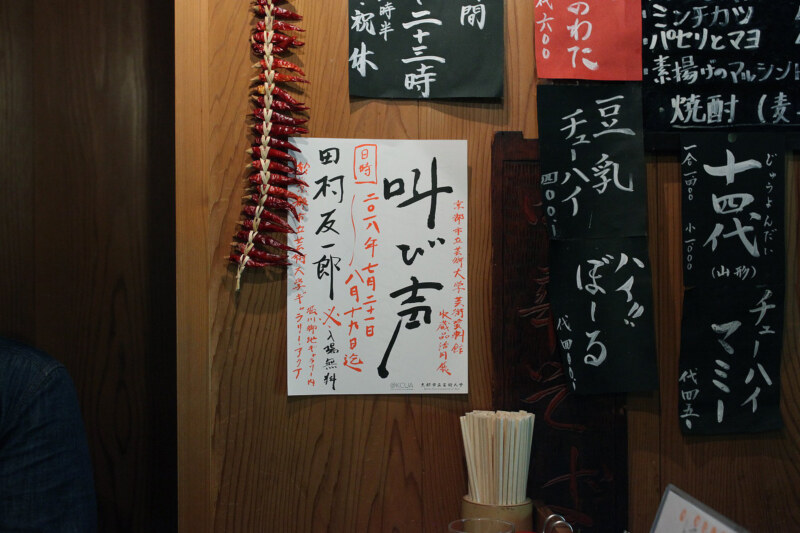 間
二十三時
時半
・祝休
のわた
代六〇〇
・ミンチカツ
・パセリとマヨ
・素揚げのマルシン
焼酎（麦
豆乳
チューハイ
四〇〇
じゅうよんだい
十四代
（山形）
一合一四〇〇
小一〇〇〇
ハイぼーる
チューハイ
マミー
代四五〇
京都市立芸術大学芸術資料館
収蔵品活用展
叫び声
日時
二〇一八年七月二十一日
八月十九日迄
田村友一郎
入場無料
京都市立芸術大学ギャラリー・アクア
@KCUA
京都市立芸術大学